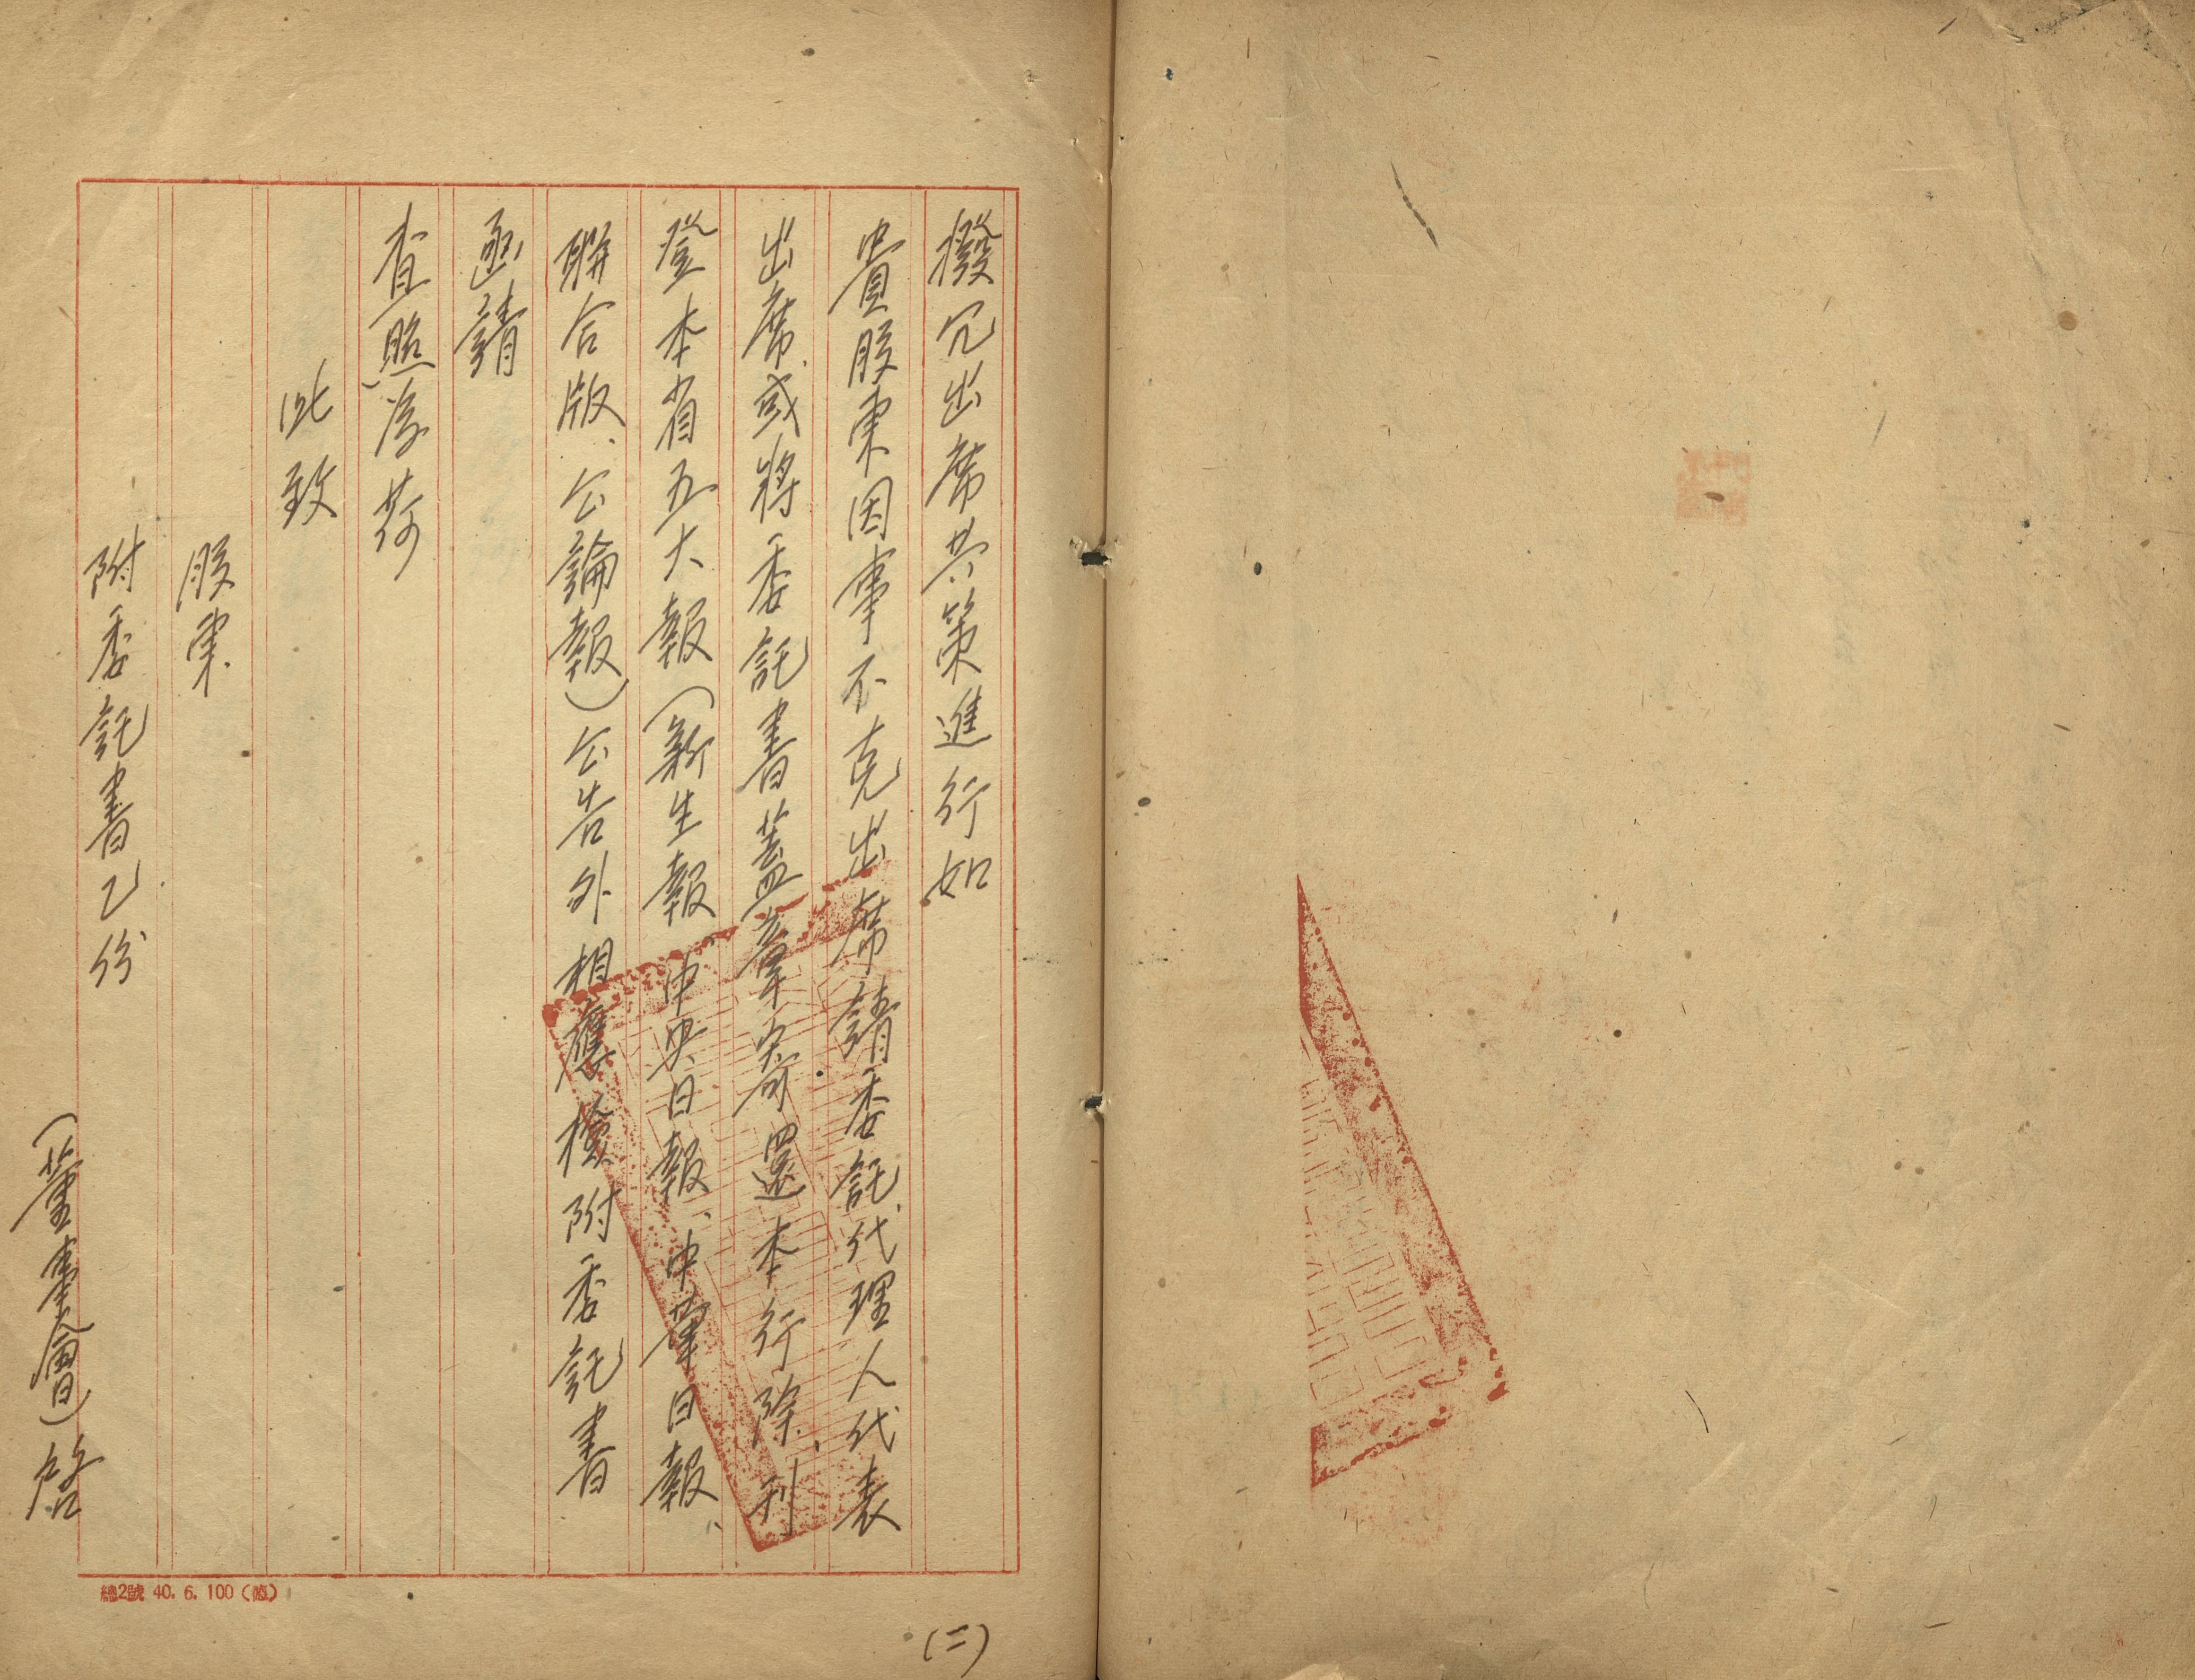 撥冗出席共策進行如
貴股東因事不克出席請委託代理人代表
出席或將委託書蓋章寄還本行除刊
登本省五大報（新生報、中央日報、中華日報、
聯合版、公論報）公告外相應檢附委託書
函請
查照為荷
此致
股東
附委託書乙份
（董事會）啓
總2號 40. 6. 100（值）
（二）